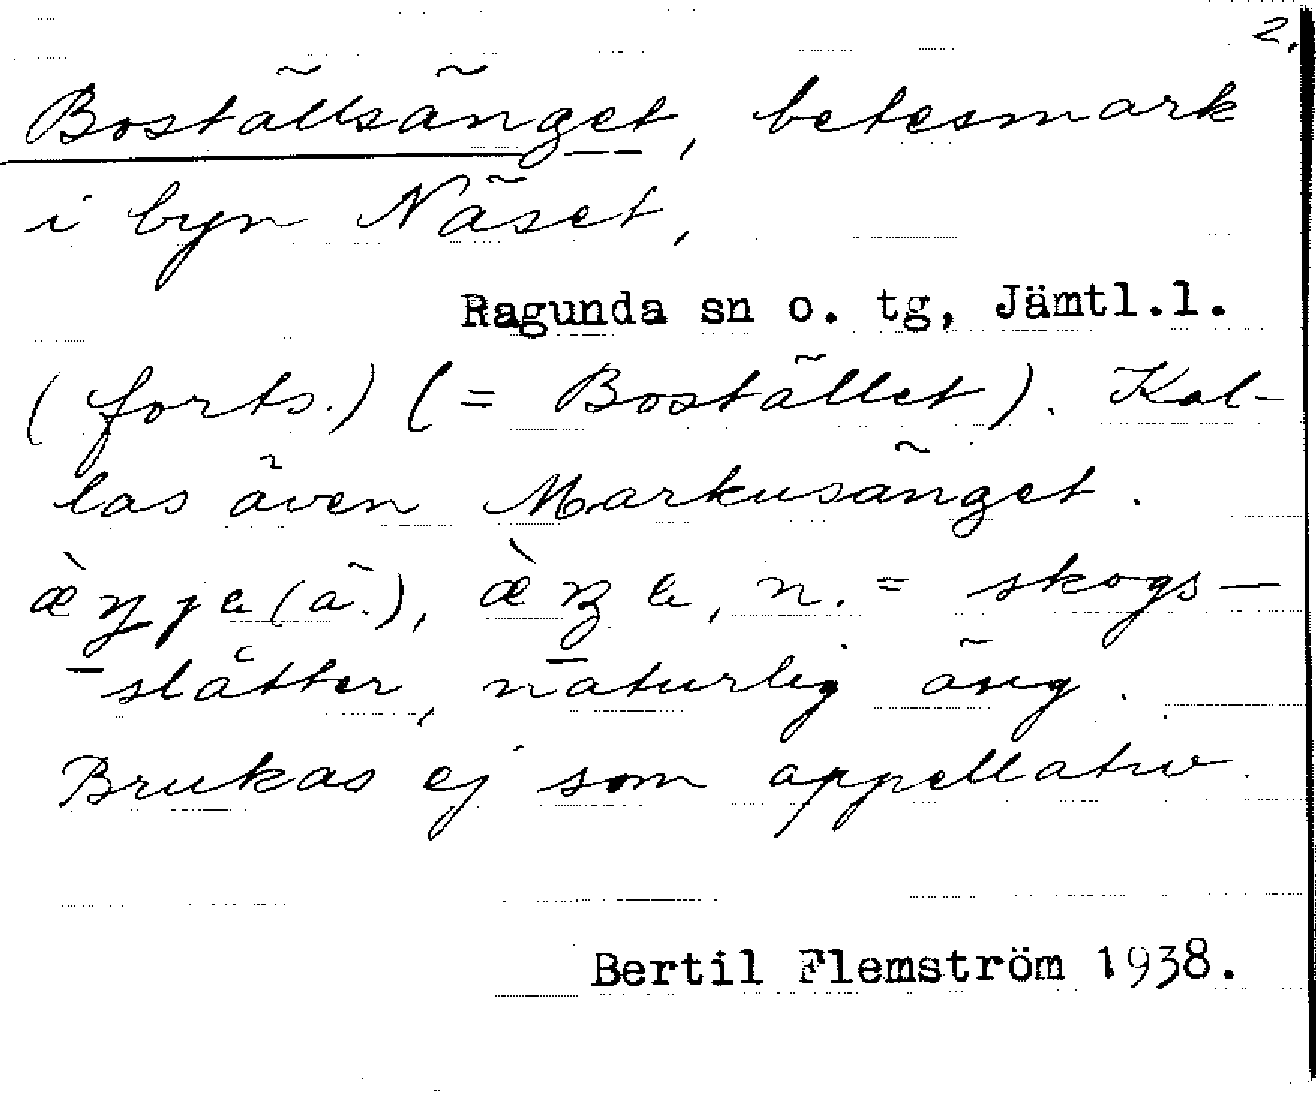 2.
Boställsänget, betesmark
i byn Näset,
Ragunda sn o. tg, Jämtl.l.
(forts.) (= Bostället). Kal-
las även Markusänget.
(ä.), n. = skogs-
-slåtter, naturlig äng.
Brukas ej som appellativ.
Bertil Flemström 1938.